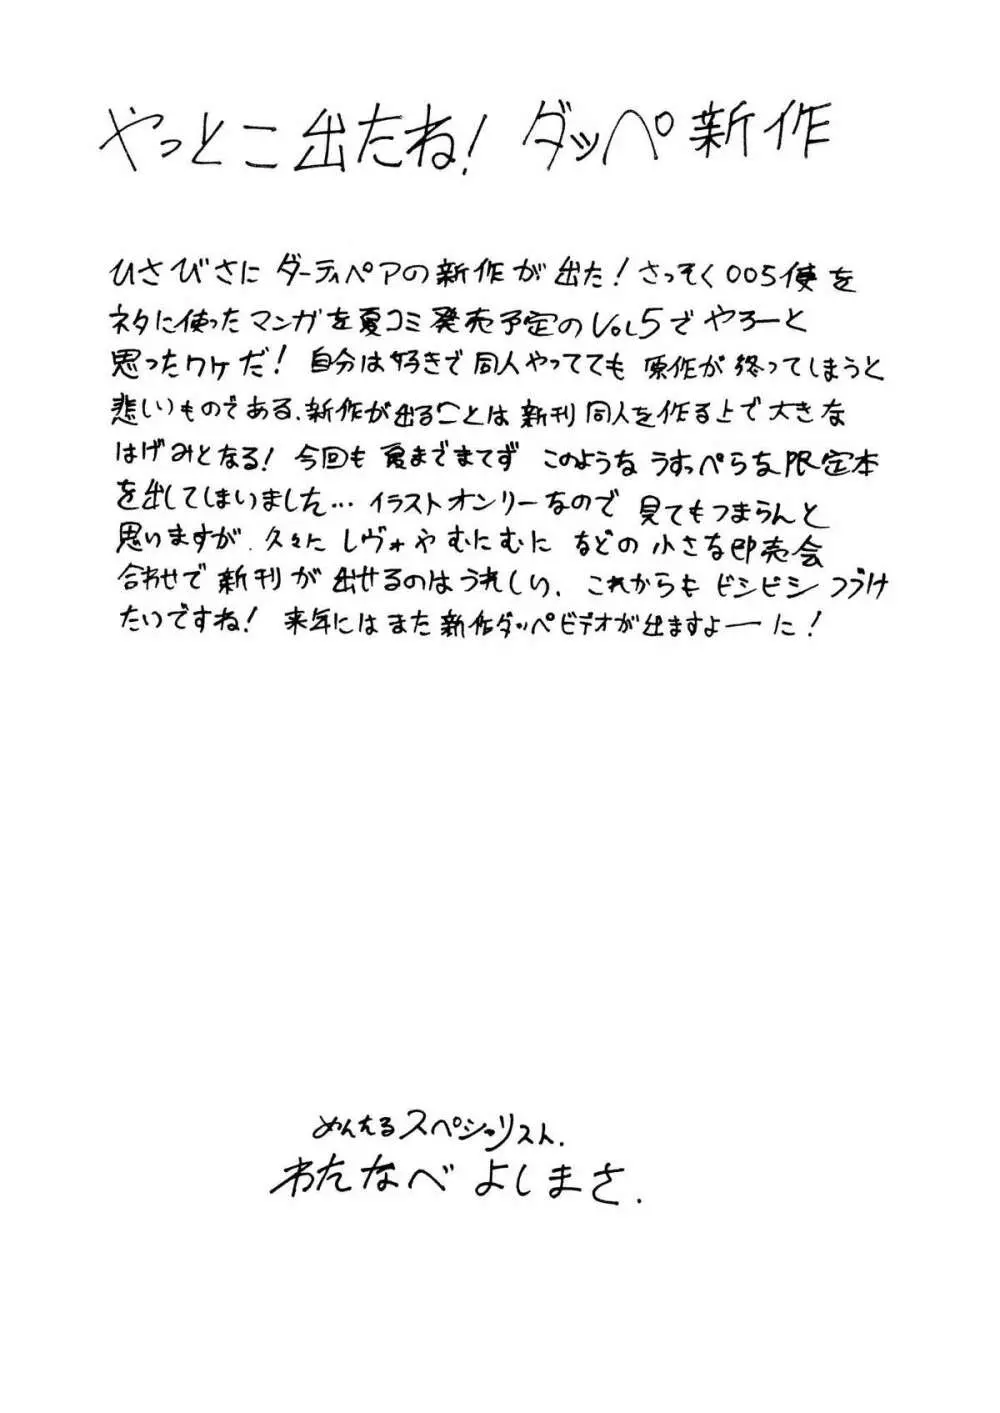 やっとこ出たね! ダッペ新作
ひさびさに ダーティペアの新作が出た!さっそく005便を
ネタに使ったマンガを夏コミ発売予定のVol5でやろーと
思ったワケだ! 自分は好きで同人やってても 原作が終ってしまうと
悲しいものである、新作が出ることは新刊同人を作る上で大きな
はげみとなる! 今回も夏までまてず このようなうすっぺらな限定本
を出してしまいました…イラストオンリーなので見てもつまらんと
思いますが、久々に レヴォやむにむに などの小さな即売会
合わせで新刊が出せるのはうれしい、これからもビシビシつづけ
たいですね! 来年にはまた新作ダッペビデオが出ますよーに!
めんえるスペシャリスト.
わたなべ よしまさ.